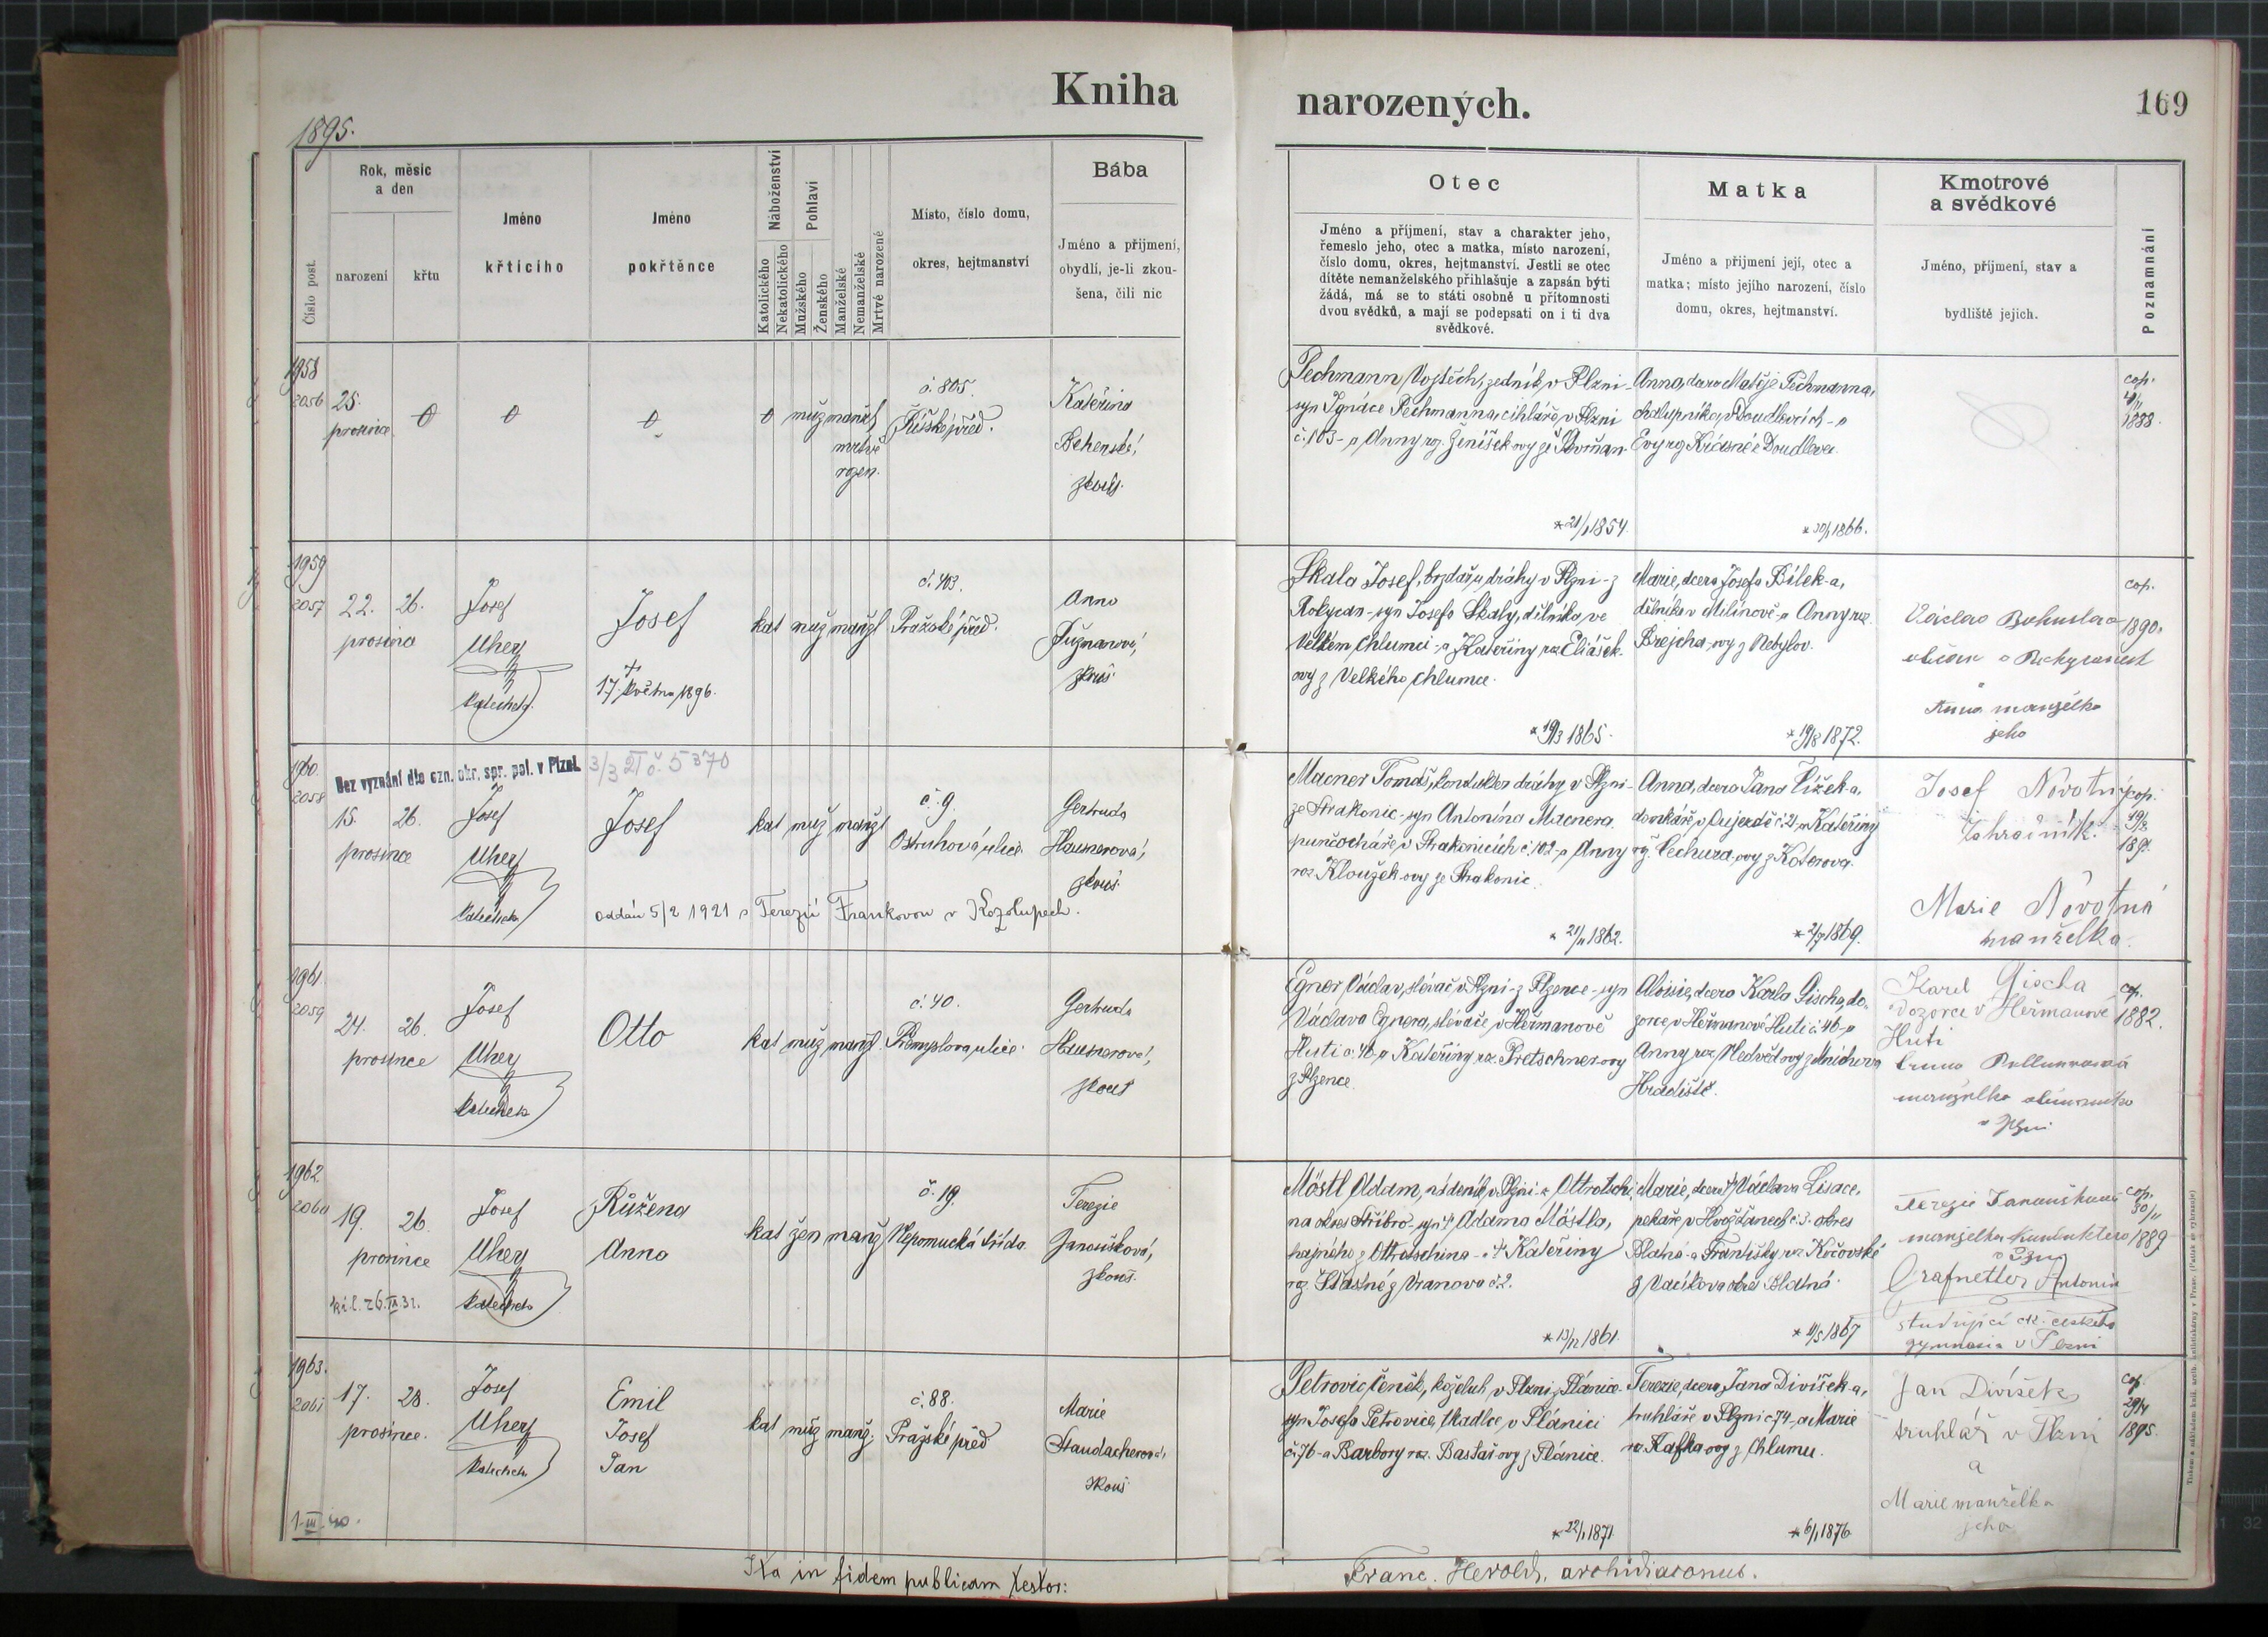 Kniha narozených.
169
1895.
Číslo post.
Rok, měsíc
a den
narození
křtu
Jméno
křtícího
Jméno
pokřtěnce
Náboženství
Katolického
Nekatolického
Pohlaví
Mužského
Ženského
Manželské
Nemanželské
Mrtvě narozené
Místo, číslo domu,
okres, hejtmanství
Bába
Jméno a příjmení,
obydlí, je-li zkou-
šena, čili nic
Otec
Jméno a příjmení, stav a charakter jeho,
řemeslo jeho, otec a matka, místo narození,
číslo domu, okres, hejtmanství. Jestli se otec
dítěte nemanželského přihlašuje a zapsán býti
žádá, má se to státi osobně u přítomnosti
dvou svědků, a mají se podepsati on i ti dva
svědkové.
Matka
Jméno a přijmení její, otec a
matka; místo jejího narození, číslo
domu, okres, hejtmanství.
Kmotrové
a svědkové
Jméno, příjmení, stav a
bydliště jejich.
Poznamnání
1958
2056
25.
prosince
0
0
0
0
muž
manžl
mrtvě
rozen.
č. 805.
Říšské před.
Kateřina
zkouš.
Pechmann Vojtěch, zedník v Plzni-
syn Ignáce Pechmanna, cihláře v Plzni
č. 103 - a Anny roz. Ženíšek-ovy ze
*21/1 1854.
Anna, dcera Matěje Pechmanna,
chalupníka v Doudlevcích - a
Evy roz. z Doudlevec
*30/1 1866.
cop.
1888.
1959
2057
22. 26.
prosince
Josef
Uherz
katecheta
Josef
†
17. května 1896.
kat muž manžl
č. 403.
Pražské před.
Anna
zkouš.
Skala Josef, brzdař u dráhy v Plzni - z
Rokycan - syn Josefa Skaly, dělníka ve
Velkém Chlumci - a Kateřiny roz. Eliášek-
ovy z Velkého Chlumce.
*19/3 1865.
Marie, dcera Josefa Bílek-a,
dělníka v Milínově - a Anny roz.
Brejcha-ovy z Nebylov.
*19/8 1872.
Václav Bohuslav
občan v
a
Anna manželka
jeho
cop.
1890.
1960.
2058
Bez vyznání dle ozn. okr. spr. pol. v Plzni.
3/3 21 č. 5370
15. 26.
prosince
Josef
Uherz
katecheta
Josef
kat muž manžl
č. 9.
Ostruhová ulice
Gertruda
Hausnerová,
zkouš.
oddán 5/2 1921 s Terezií Frankovou v Kozolupech.
Macner Tomáš, kondukter dráhy v Plzni-
ze Strakonic - syn Antonína Macnera
punčocháře v Strakonicích č. 102 - a Anny
roz. Klouzek-ovy ze Strakonic.
*21/11 1862.
Anna, dcera Jana Čížek-a,
domkáře v Oujezdě č. 21 - a Kateřiny
roz. Čechura-ovy z Koterova.
*2/7 1869.
Josef Novotný
Zahradník.
Marie Novotná
manželka.
cop.
189
1961.
2059
24. 26.
prosince
Josef
Uherz
katecheta
Otto
kat muž manžl
č. 40.
Přemyslova ulice.
Gertruda
Hausnerová,
zkouš
Egner Václav, slévač v Plzni - z Plzence - syn
Václava Egnera, slévače v Heřmanově
Huti č. 46 - a Kateřiny roz. Pretschner-ovy
z Plzence.
Aloisie, dcera Karla Gischa, do-
zorce v Heřmanově Huti č. 46 - a
Anny roz. Medvěd-ovy z Mnichova
Hradiště.
Karel Gischa
dozorce v Heřmanově
Huti
manželka
v Plzni
cop.
1882.
1962
2060
19. 26.
prosince
Josef
Uherz
katecheta
Růžena
Anna
kat žen manž
č. 19.
Nepomucká třída.
Terezie
Janoušková,
zkouš.
Möstl Adam, nádeník v Plzni - z Ottrotschi-
na okres Stříbro - syn † Adama Möstla,
hajného z Ottrotschina - a † Kateřiny
roz. Šťastné z Vranova č. 2.
*13/12 1861.
Marie, dcera † Václava Lisace,
pekaře v Hvožďanech č. 3. okres
Blatná - a Františky roz. Kočovské
z Vacíkova okres Blatná.
*4/5 1867
Terezie Janoušková
manželka konduktera
v Plzni
Grafnetter Antonín
studující c.k. českého
gymnasia v Plzni
cop.
30/11
1889
1963.
2061
17. 28.
prosince.
Josef
Uherz
katecheta
Emil
Josef
Jan
kat muž manž.
č. 88.
Pražské před
Marie
Staudacherová,
zkouš
1. III. 40.
Petrovic Čeněk, koželuh v Plzni z Plánice-
syn Josefa Petrovice, tkadlce v Plánici
č. 76 - a Barbory roz. Bastař-ovy z Plánice.
*22/1 1871
Terezie, dcera Jana Divíšek-a,
truhláře v Plzni č. 74 - a Marie
roz. Kafka-ovy z Chlumu.
*6/1 1876
Jan Divíšek
truhlář v Plzni
a
Marie manželka
jeho
cop.
29/4
1895.
Ita in fidem publicam testor:
Franc. Herold, archidiaconus.